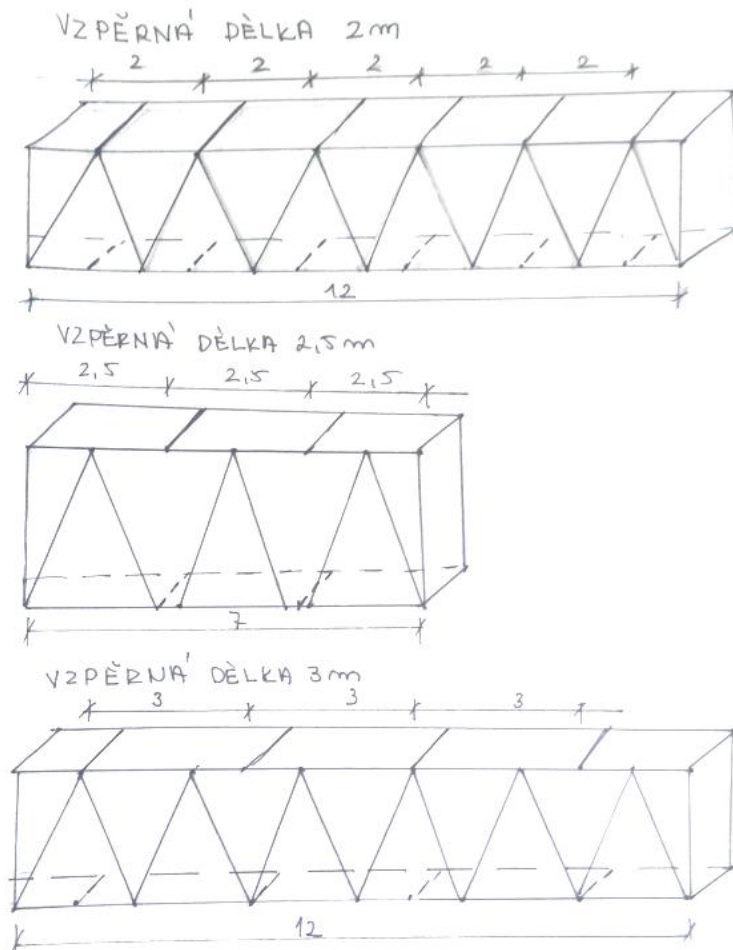 VZPĚRNÁ DÈLKA 2m
2 2 2 2 2
12
VZPĚRNÁ DÈLKA 2,5m
2,5 2,5 2,5
7
VZPĚRNÁ DÈLKA 3m
3 3 3
12